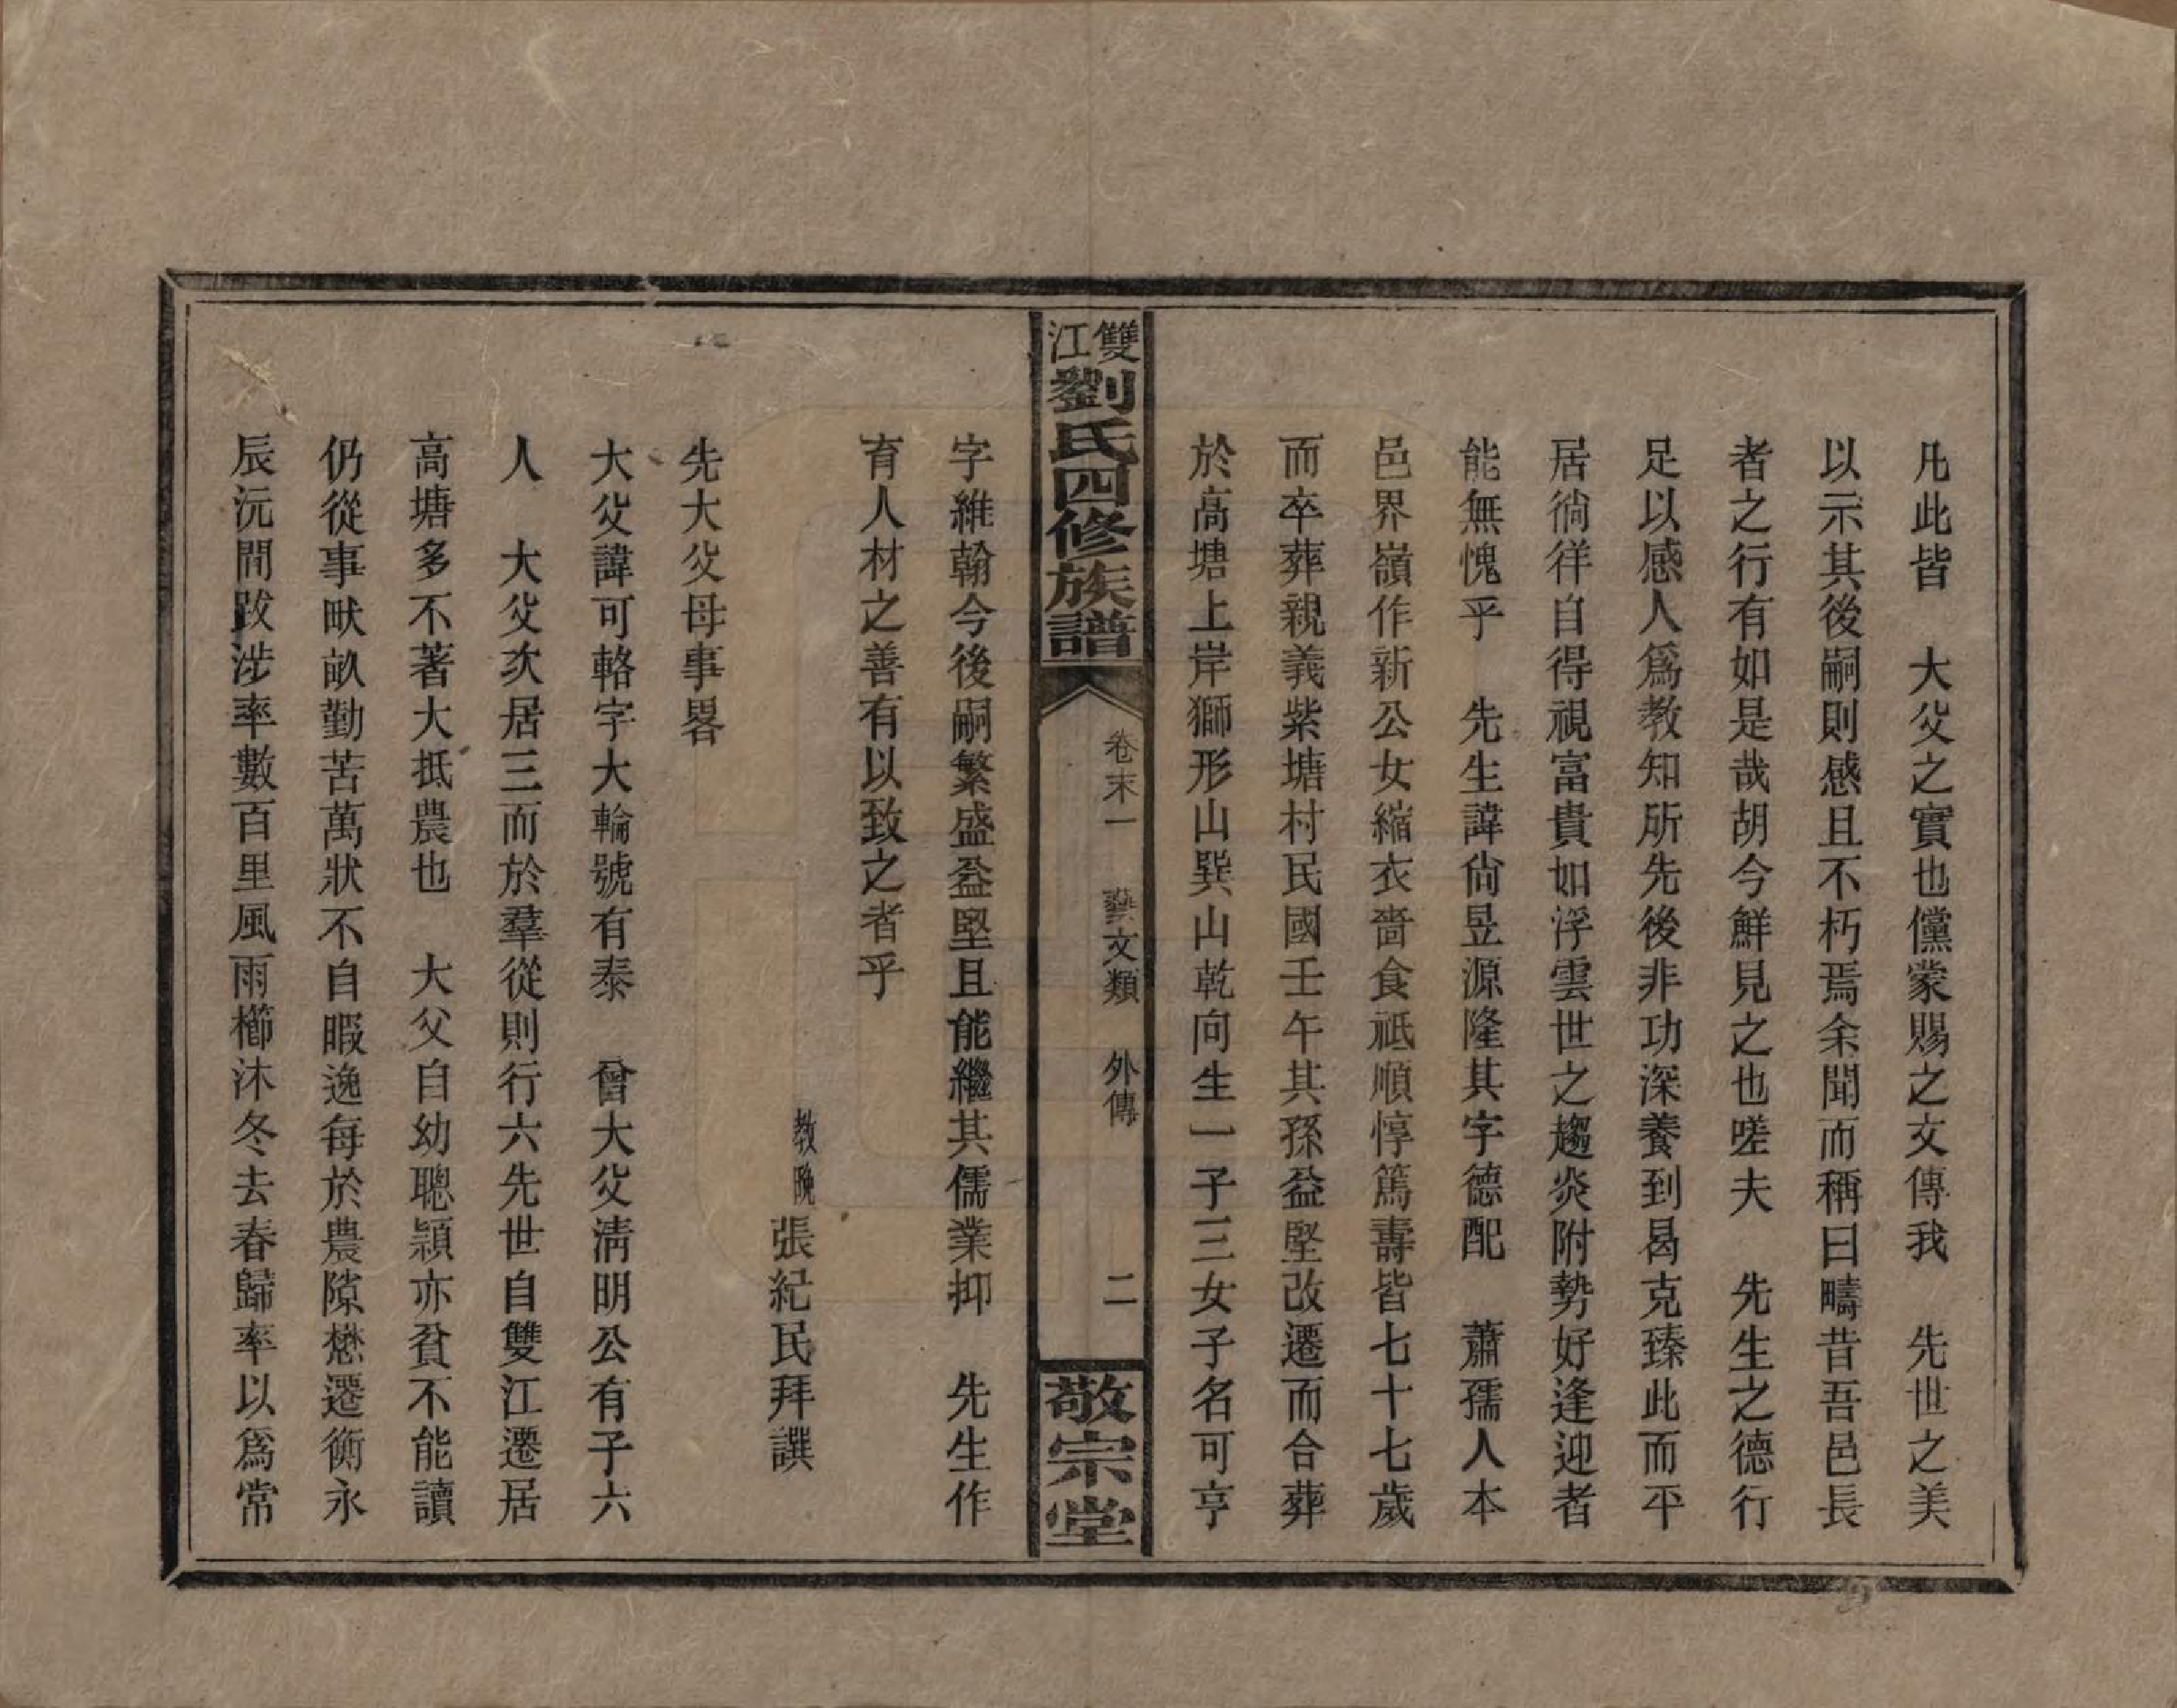 凡此皆　大父之實也儻蒙賜之文傳我　先世之美
以示其後嗣則感且不朽焉余聞而稱曰疇昔吾邑長
者之行有如是哉胡今鮮見之也嗟夫　先生之德行
足以感人爲教知所先後非功深養到曷克臻此而平
居徜徉自得視富貴如浮雲世之趨炎附勢好逢迎者
能無愧乎　先生諱尙昱源隆其字德配　蕭孺人本
邑界嶺作新公女縮衣嗇食祗順惇篤壽皆七十七歲
而卒葬親義紫塘村民國壬午其孫益堅改遷而合葬
於高塘上岸獅形山巽山乾向生一子三女子名可亨
雙江劉氏四修族譜
卷末一　藝文類　外傳　二
敬宗堂
字維翰今後嗣繁盛益堅且能繼其儒業抑　先生作
育人材之善有以致之者乎
教晚張紀民拜譔
先大父母事畧
大父諱可輅字大輪號有泰　曾大父淸明公有子六
人　大父次居三而於羣從則行六先世自雙江遷居
高塘多不著大抵農也　大父自幼聰穎亦貧不能讀
仍從事畎畝勤苦萬狀不自暇逸每於農隙懋遷衡永
辰沅間跋涉率數百里風雨櫛沐冬去春歸率以爲常